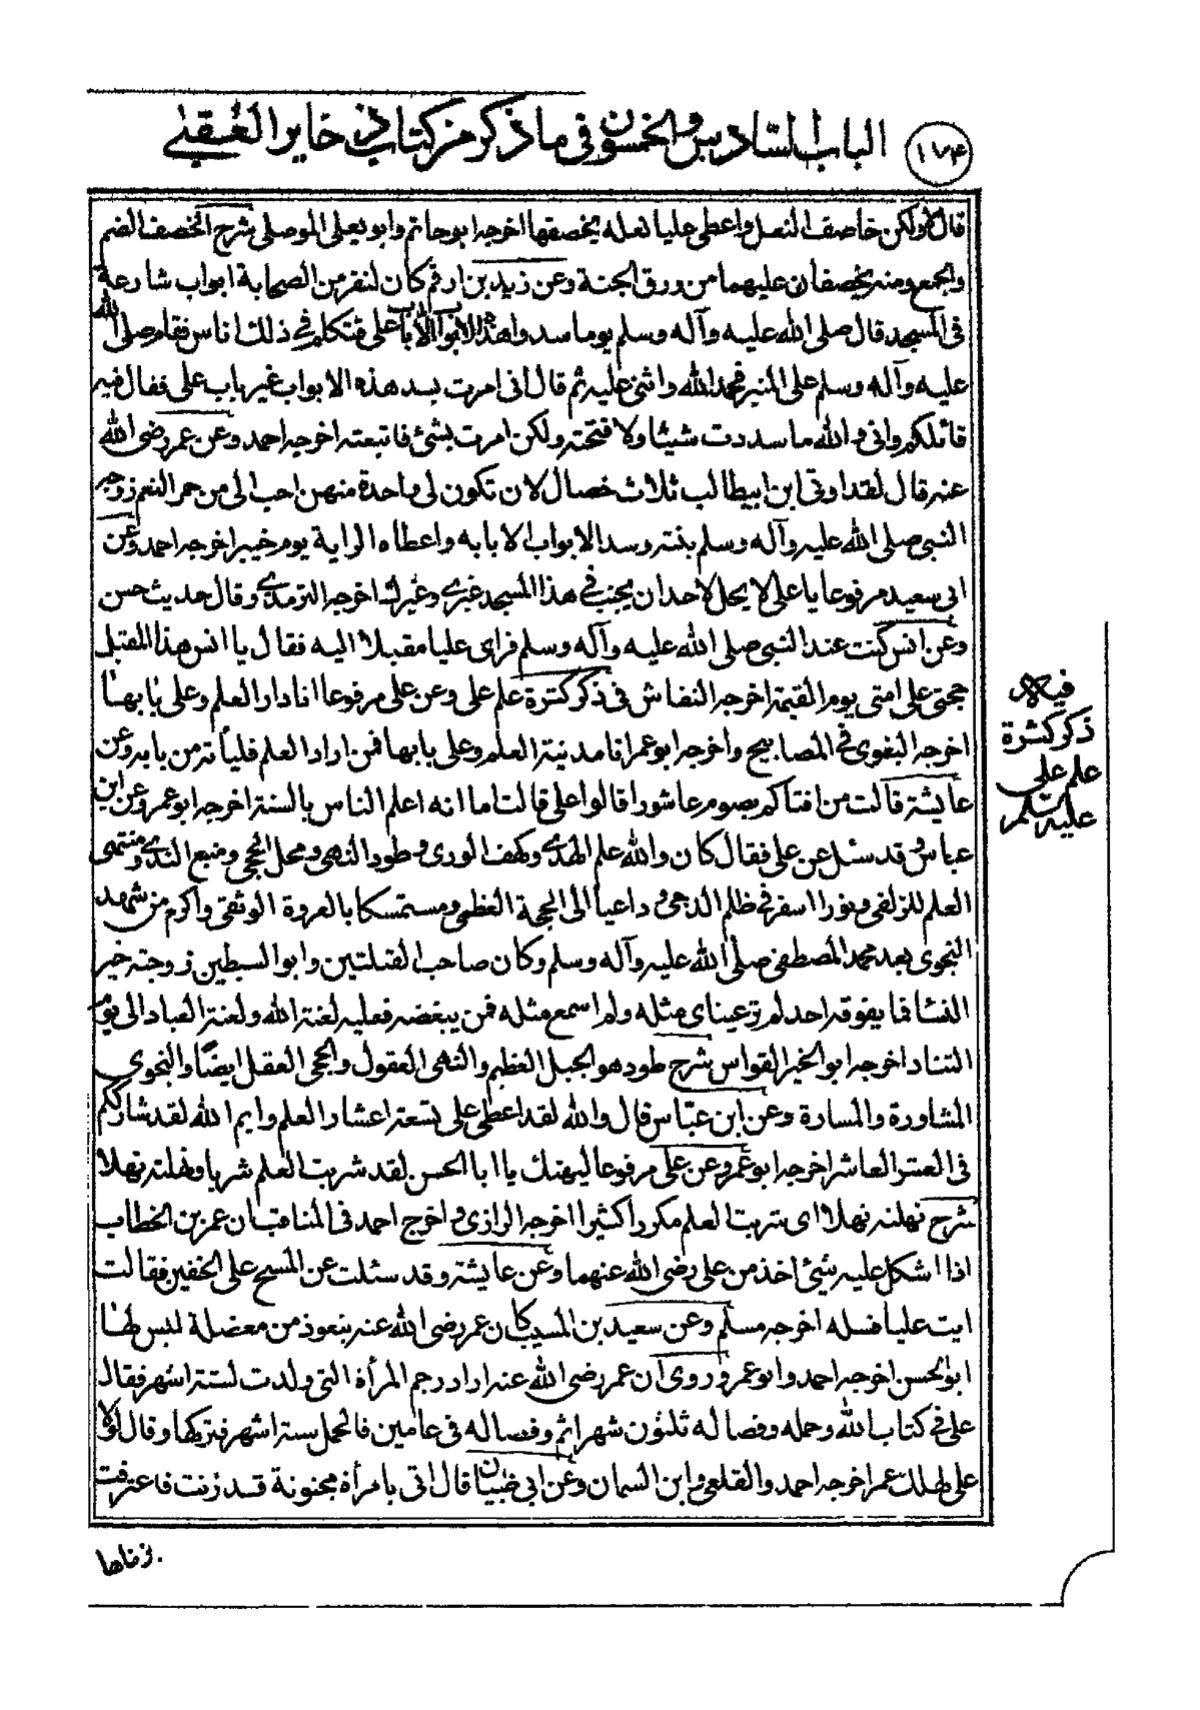 ١٧٤
الباب السادس والخمسون في ما ذكر من كتاب ذخاير العقبى
قال لا ولكن خاصف النعل واعطى عليا نعله يخصفها اخرجه ابو حاتم وابو يعلى الموصلي شرح الخصف الضم
والجمع ومنه يخصفان عليهما من ورق الجنة وعن زيد بن ارقم كان لنفر من الصحابة ابواب شارعة
في المسجد قال صلى الله عليه وآله وسلم يوما سدوا هذه الابواب الا باب علي فتكلم في ذلك اناس فقام صلى الله
عليه وآله وسلم على المنبر فحمد الله واثنى عليه ثم قال انى امرت بسد هذه الابواب غير باب على فقال فيه
قائلكم وانى والله ما سددت شيئا ولا فتحته ولكن امرت بشئ فاتبعته اخرجه احمد وعن عمر رضى الله
عنه قال لقد اوتى ابن ابيطالب ثلاث خصال لان تكون لى واحدة منهن احب الى من حمر النعم زوجه
النبى صلى الله عليه وآله وسلم بنته وسد الابواب الا بابه واعطاه الراية يوم خيبر اخرجه احمد وعن
ابى سعيد مرفوعا يا على لا يحل لاحد ان يجنب في هذا المسجد غيرى وغيرك اخرجه الترمذى وقال حديث حسن
وعن انس كنت عند النبى صلى الله عليه وآله وسلم فراى عليا مقبلا اليه فقال يا انس هذا المقبل
حجتى على امتى يوم القيمة اخرجه النقاش فى ذكر كثرة علم على وعن على مرفوعا انا دار العلم وعلى بابها
اخرجه البغوى في المصابيح واخرجه ابو عمر انا مدينة العلم وعلى بابها فمن اراد العلم فليأته من بابه وعن
عايشة قالت من افتاكم بصوم عاشورا قالوا على قالت اما انه اعلم الناس بالسنة اخرجه ابو عمر وعن ابن
عباس وقد سئل عن على فقال كان والله علم الهدى وكهف الورى وطود النهى ومحل الحجى ومنبع الندى ومنتهى
العلم للزلفى ونورا اسفر في ظلم الدجى وداعيا الى المحجة العظمى ومستمسكا بالعروة الوثقى واكرم من شهد
النجوى بعد محمد المصطفى صلى الله عليه وآله وسلم وكان صاحب القبلتين وابو السبطين زوجته خير
النسا فما يفوقه احد لم تر عيناى مثله ولم اسمع مثله فمن يبغضه فعليه لعنة الله ولعنة العباد الى يوم
التناد اخرجه ابو الخير القواس شرح طود هو الجبل العظيم والنهى العقول والحجى العقل ايضا والنجوى
المشاورة والمسارة وعن ابن عباس قال والله لقد اعطى على تسعة اعشار العلم وايم الله لقد شارككم
فى العشر العاشر اخرجه ابو عمر وعن على مرفوعا ليهنك يا ابا الحسن لقد شربت العلم شربا ونهلته نهلا
شرح نهلته نهلا اى شربت العلم مكررا كثيرا اخرجه الرازى واخرج احمد فى المناقب ان عمر بن الخطاب
اذا اشكل عليه شئ اخذ من على رضى الله عنهما وعن عايشة وقد سئلت عن المسح على الخفين فقالت
ايت عليا فسله اخرجه مسلم وعن سعيد بن المسيب كان عمر رضى الله عنه يتعوذ من معضلة ليس لها
ابو الحسن اخرجه احمد وابو عمر وروى ان عمر رضى الله عنه اراد رجم المرأة التى ولدت لستة اشهر فقال
على في كتاب الله وحمله وفصاله ثلثون شهرا ثم وفصاله فى عامين فالحمل ستة اشهر فتركها وقال لولا
على لهلك عمر اخرجه احمد والقلعى وابن السمان وعن ابى ظبيان قال اتى بامرأة مجنونة قد زنت فاعترفت
فيه
ذكر كثرة
علم على
عليه السلم
بزناها